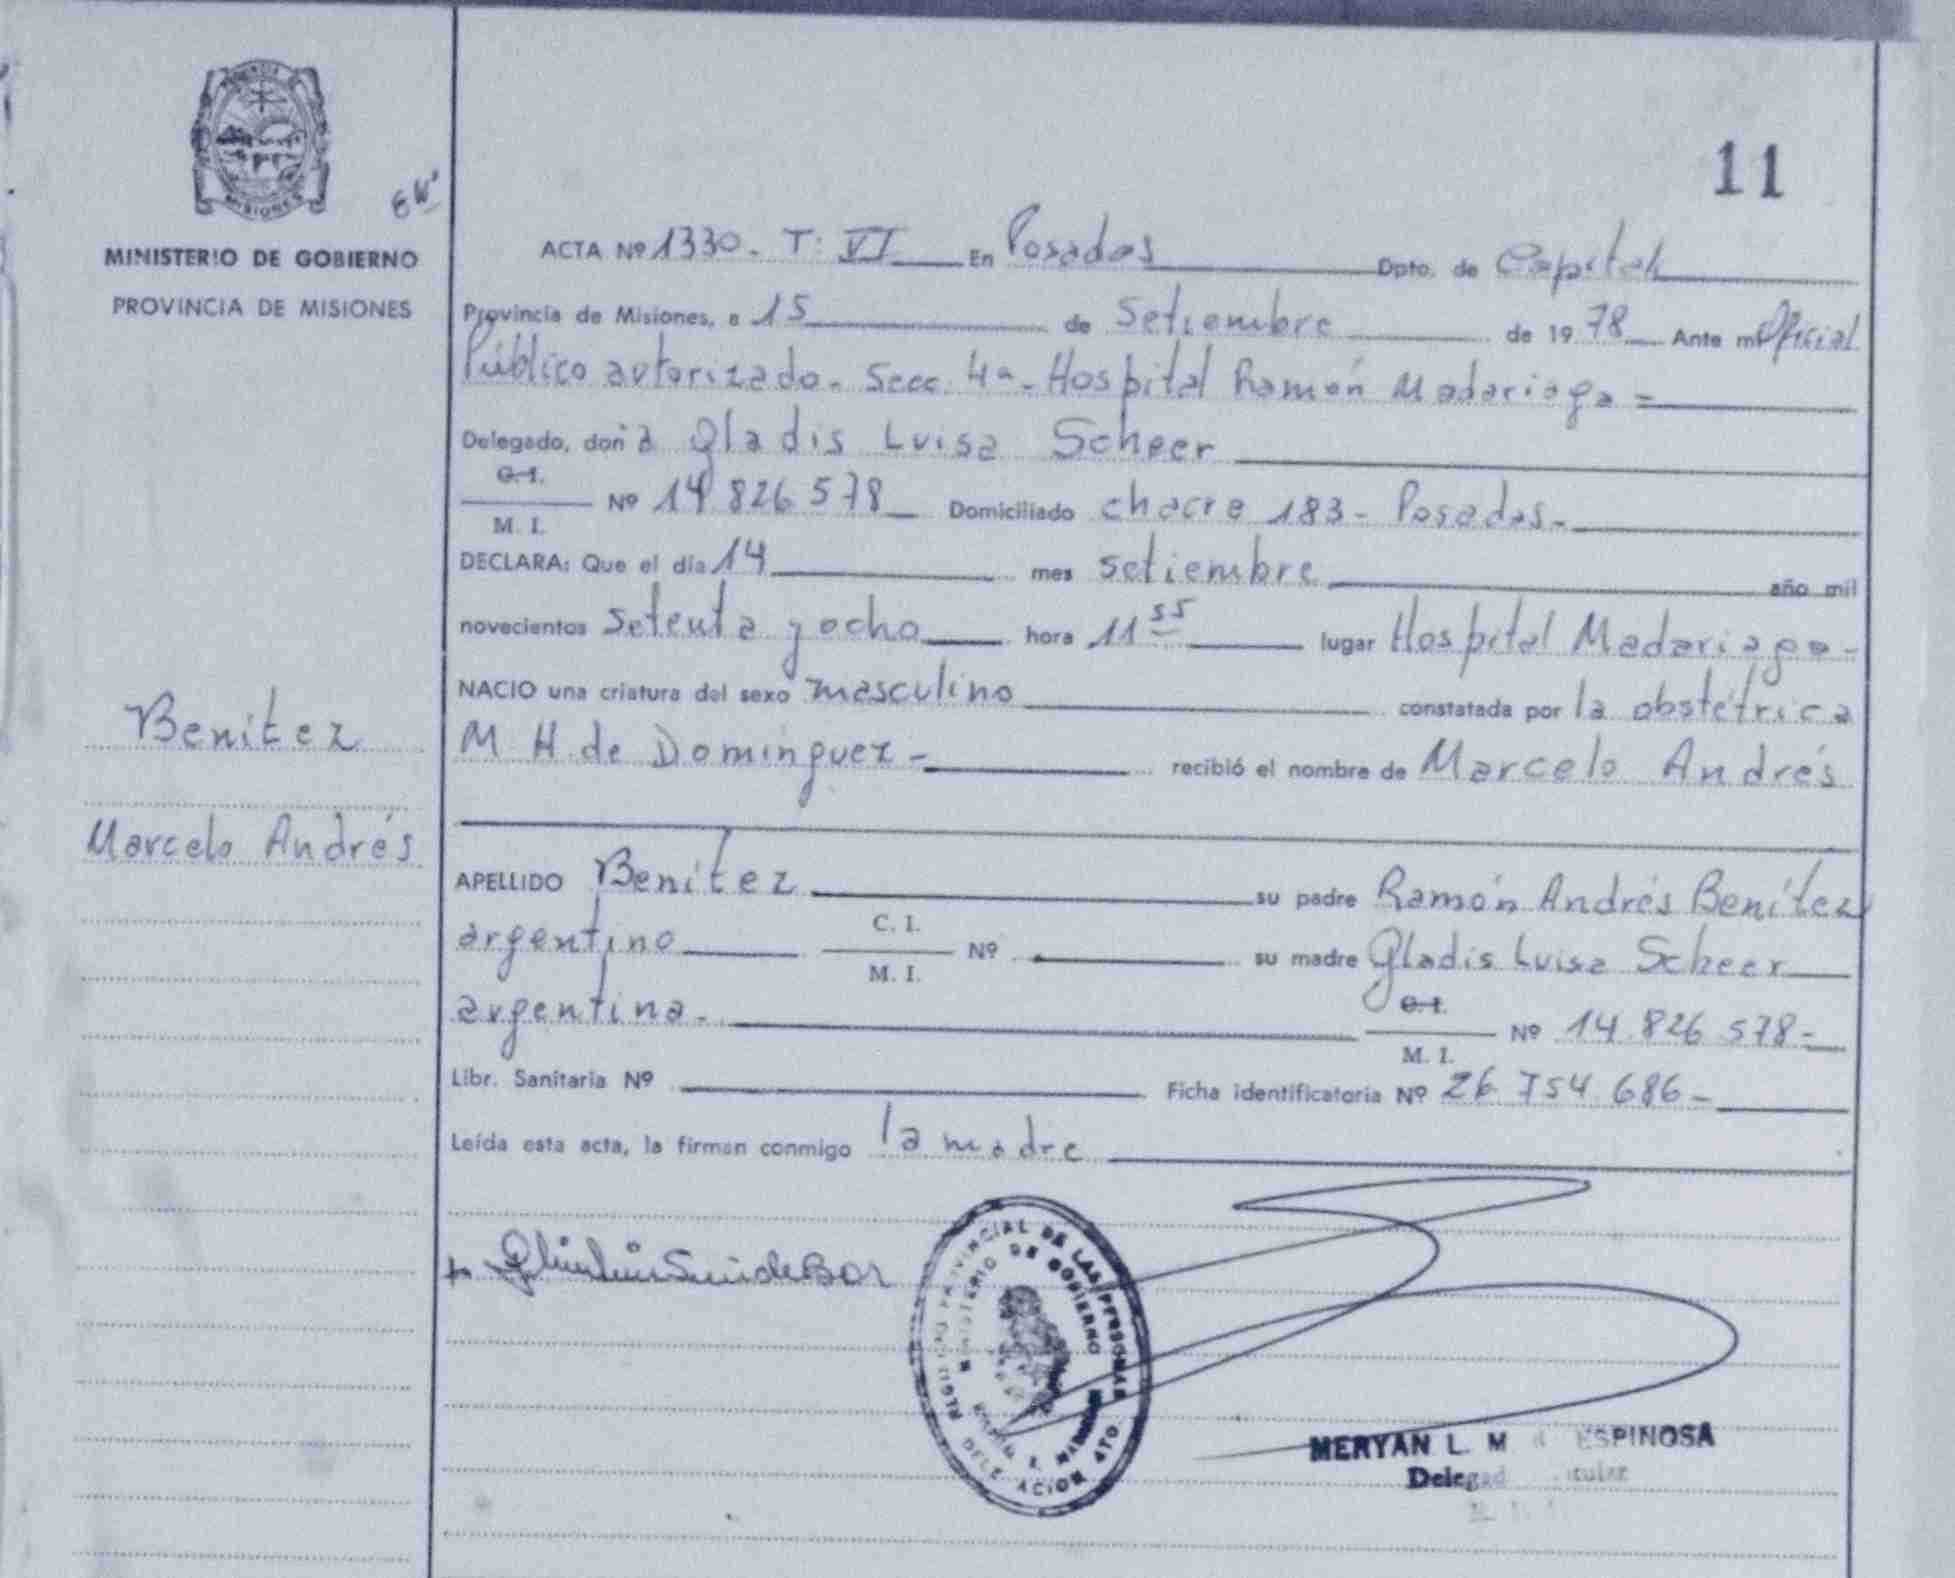 PROVINCIA DE
MISIONES
MINISTERIO DE GOBIERNO
PROVINCIA DE MISIONES
11
ACTA Nº 1330 - T: VI En Posadas Dpto. de Capital
Provincia de Misiones, a 15 de Setiembre de 1978 Ante mí Oficial
Público autorizado - Secc. 4ª - Hospital Ramón Madariaga =
Delegado, doña Gladis Luisa Scheer
C. I.
M. I. Nº 14 826 578 Domiciliado chacra 183 - Posadas -
DECLARA: Que el día 14 mes setiembre año mil
novecientos setenta y ocho hora 11 55 lugar Hospital Madariaga -
NACIO una criatura del sexo masculino constatada por la obstétrica
M H. de Domínguez - recibió el nombre de Marcelo Andrés
Benítez
Marcelo Andrés
APELLIDO Benítez su padre Ramón Andrés Benítez
argentino C. I. M. I. Nº su madre Gladis Luisa Scheer
argentina - C. I. M. I. Nº 14.826 578 -
Libr. Sanitaria Nº Ficha identificatoria Nº 26 754 686 -
Leída esta acta, la firman conmigo la madre
REGISTRO PROVINCIAL DE LAS PERSONAS
MINISTERIO DE GOBIERNO
DELEGACION 4TO
MERYAN L. M ESPINOSA